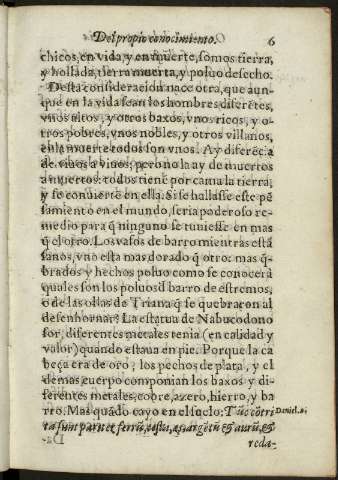 Del propio conocimiento. 6
chicos, en vida, y en muerte, somos tierra,
y hollada, tierra muerta, y poluo desecho.
Desta consideracion nace otra, que aun-
que en la vida sean los hombres diferẽtes,
vnos altos, y otros baxos, vnos ricos, y o-
tros pobres, vnos nobles, y otros villanos,
en la muerte todos son vnos. Ay diferẽcia
de viuos a viuos; pero no la ay de muertos
a muertos: todos tienẽ por cama la tierra,
y se conuierte en ella. Si se hallasse este pẽ
samiento en el mundo, seria poderoso re-
medio para q̃ ninguno se tuuiesse en mas
q̃ el otro. Los vasos de barro mientras estã
sanos, vno esta mas dorado q̃ otro: mas q̃-
brados y hechos poluo como se conocerã
quales son los poluos d̃ barro de estremos,
o de las ollas de Triana q̃ se quebraron al
desenhornar? La estatua de Nabucodono
sor, diferentes metales tenia (en calidad y
valor) quando estaua en pie. Porque la ca
beça era de oro, los pechos de plata, y el
demas cuerpo componian los baxos y di-
ferentes metales, cobre, azero, hierro, y ba
rro. Mas quãdo cayo en el suelo: Tũc cõtri Daniel.2.
ta sunt pariter ferrũ, testa, æs, argẽtũ & aurũ, &
reda-